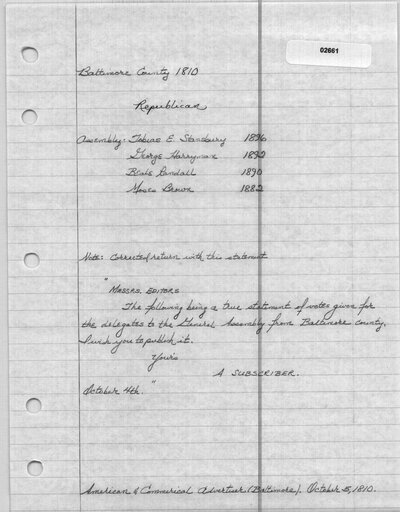 02661
Baltimore County 1810
Republican
Assembly: Tobias E. Stansbury 1896
George Harryman 1892
Beale Randall 1890
Moses Brown 1882
Note: Corrected return with this statement
"Messrs. Editors
The following being a true statement of votes given for
the delegates to the General Assembly from Baltimore County,
I wish you to publish it.
Yours
A SUBSCRIBER.
October 4th. "
American & Commercial Advertiser (Baltimore). October 5, 1810.